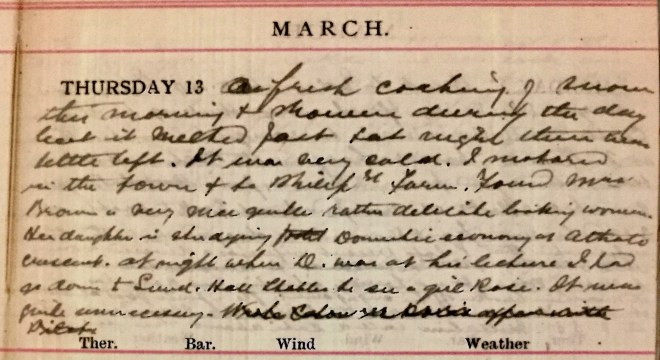 MARCH.
THURSDAY 13 A fresh coating of snow
this morning & showers during the day
but it melted fast but night there was
little left. It was very cold. I motored
in the town & to Philip's Farm. Found Mrs
Brown a very nice gentle rather delicate looking woman.
Her daughter is studying Domestic economy at Atholl
crescent. At night when D. was at his lecture I had
go down to Hall to see a girl Rose. It was
quite unnecessary.
Ther. Bar. Wind Weather